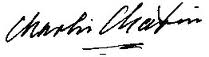 Charlie Chaplin